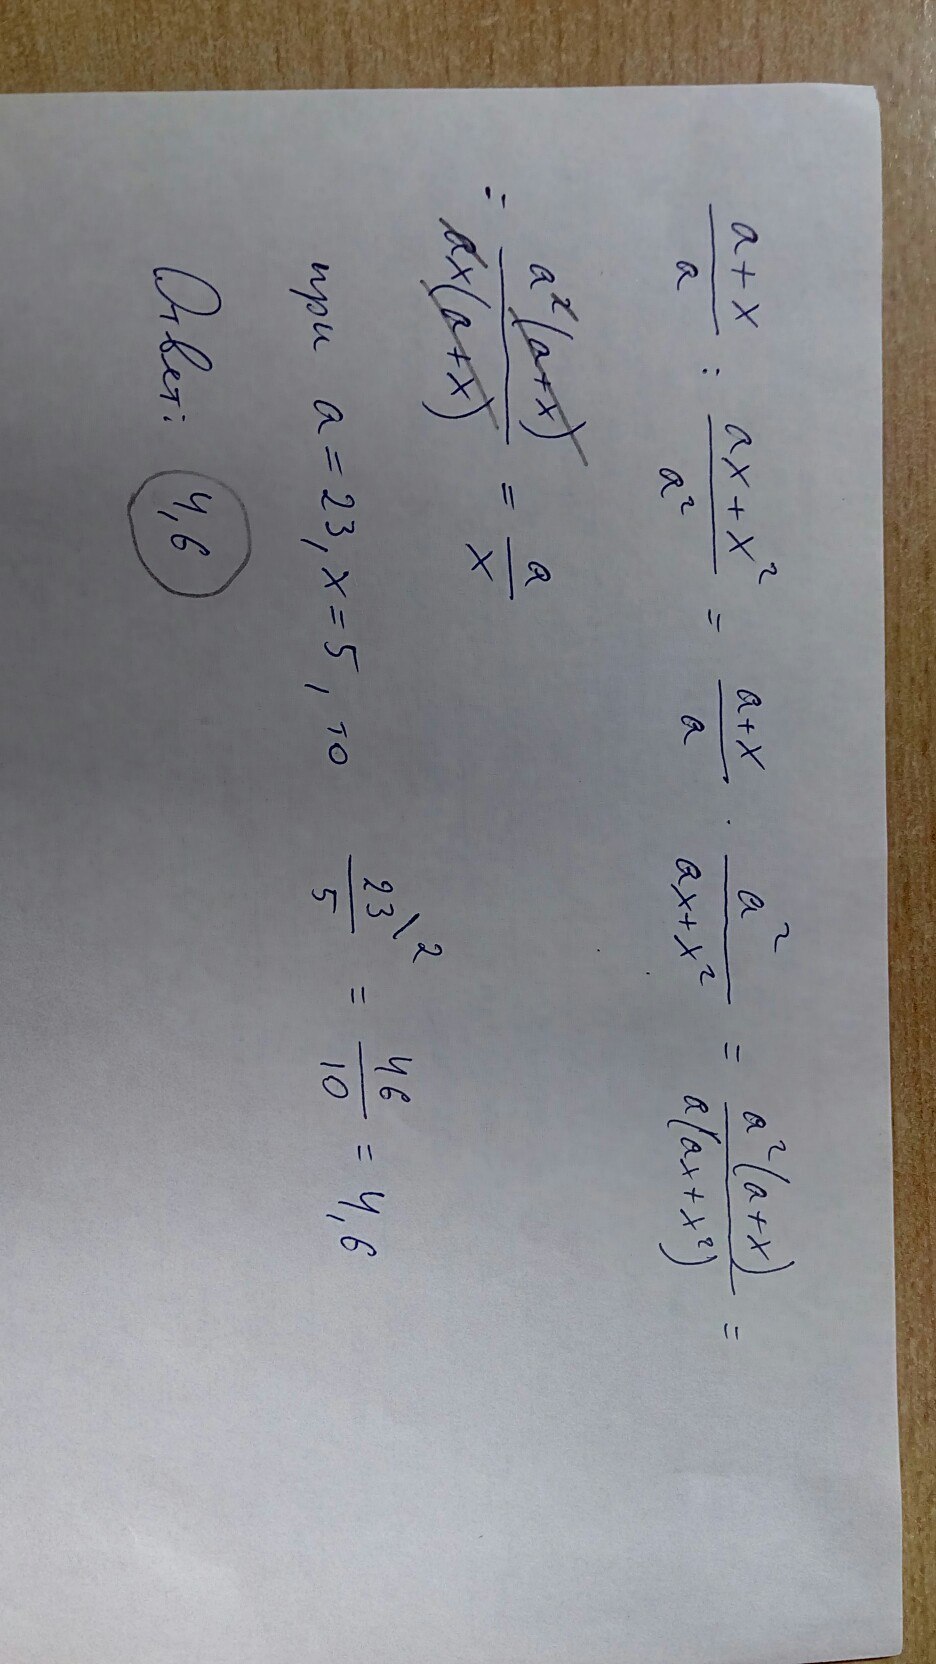 (a+x)/a : (ax+x²)/a² = (a+x)/a · a²/(ax+x²) = a²(a+x)/a(ax+x²) =
= a²(a+x)/ax(a+x) = a/x
при a=23, x=5, то 23\2/5 = 46/10 = 4,6
Ответ: 4,6